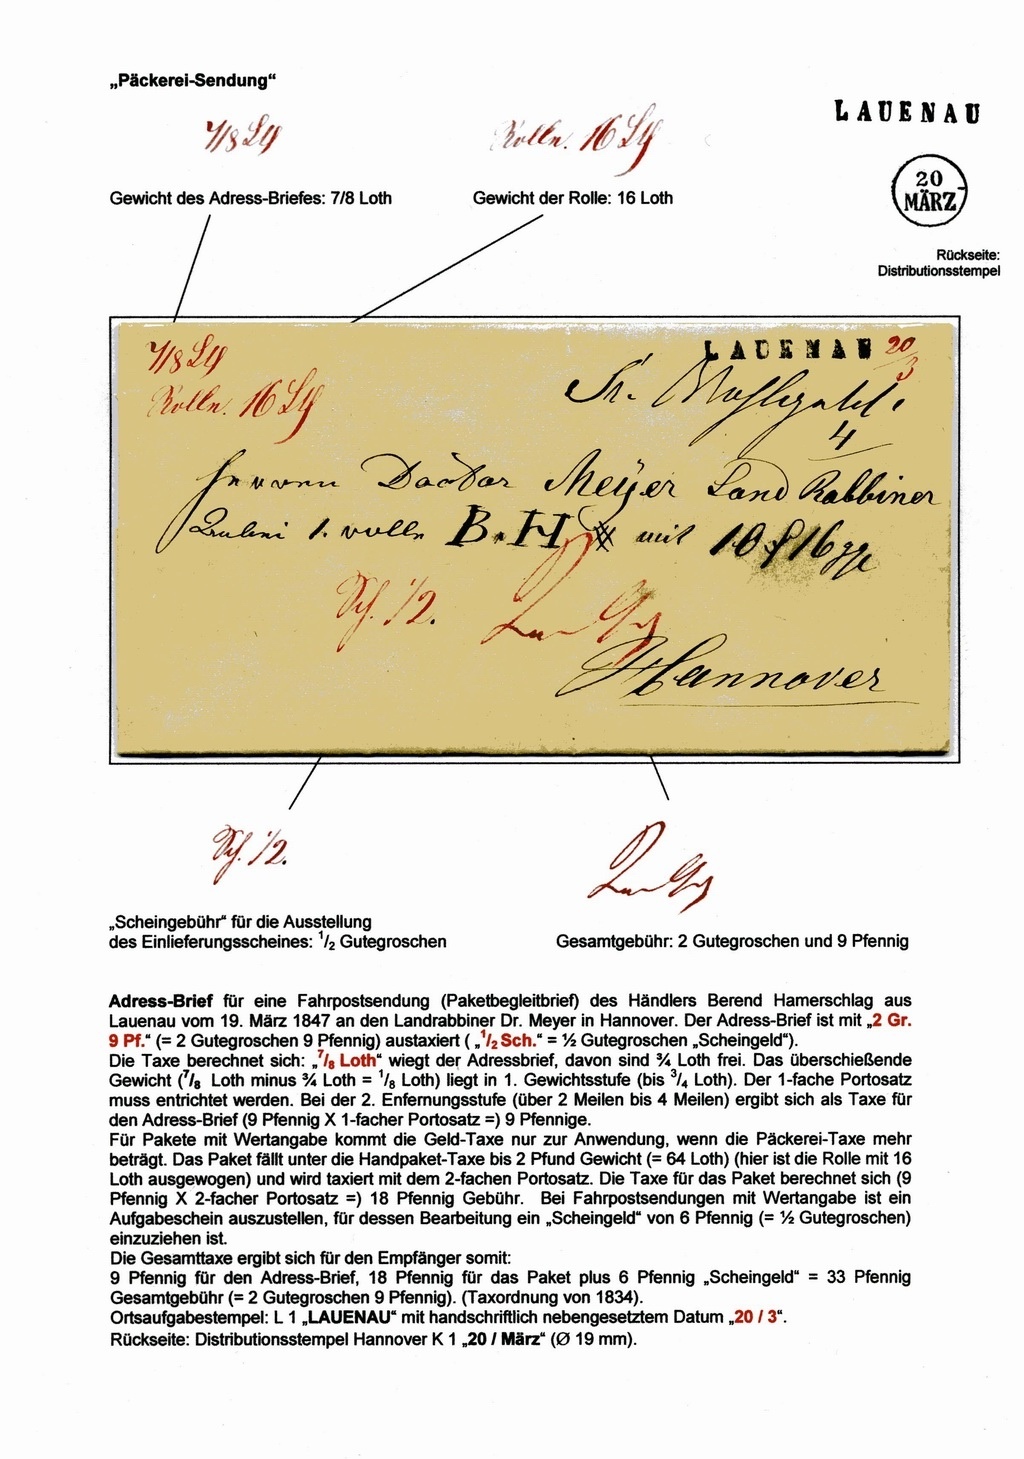 „Päckerei-Sendung“
LAUENAU
7/8 Lth
Rolln. 16 Lth
Gewicht des Adress-Briefes: 7/8 Loth
Gewicht der Rolle: 16 Loth
20
MÄRZ
Rückseite:
Distributionsstempel
7/8 Lth
LAUENAU 20/3
Rolln. 16 Lth
4
Herren Doctor Meyer Land Rabbiner
1. rolle B.H. mit 10 f 16 gg
Sch. 1/2.
Hannover
Sch. 1/2.
„Scheingebühr“ für die Ausstellung
des Einlieferungsscheines: 1/2 Gutegroschen
Gesamtgebühr: 2 Gutegroschen und 9 Pfennig
Adress-Brief für eine Fahrpostsendung (Paketbegleitbrief) des Händlers Berend Hamerschlag aus
Lauenau vom 19. März 1847 an den Landrabbiner Dr. Meyer in Hannover. Der Adress-Brief ist mit „2 Gr.
9 Pf.“ (= 2 Gutegroschen 9 Pfennig) austaxiert ( „1/2 Sch.“ = ½ Gutegroschen „Scheingeld“).
Die Taxe berechnet sich: „7/8 Loth“ wiegt der Adressbrief, davon sind ¾ Loth frei. Das überschießende
Gewicht (7/8 Loth minus ¾ Loth = 1/8 Loth) liegt in 1. Gewichtsstufe (bis 3/4 Loth). Der 1-fache Portosatz
muss entrichtet werden. Bei der 2. Enfernungsstufe (über 2 Meilen bis 4 Meilen) ergibt sich als Taxe für
den Adress-Brief (9 Pfennig X 1-facher Portosatz =) 9 Pfennige.
Für Pakete mit Wertangabe kommt die Geld-Taxe nur zur Anwendung, wenn die Päckerei-Taxe mehr
beträgt. Das Paket fällt unter die Handpaket-Taxe bis 2 Pfund Gewicht (= 64 Loth) (hier ist die Rolle mit 16
Loth ausgewogen) und wird taxiert mit dem 2-fachen Portosatz. Die Taxe für das Paket berechnet sich (9
Pfennig X 2-facher Portosatz =) 18 Pfennig Gebühr. Bei Fahrpostsendungen mit Wertangabe ist ein
Aufgabeschein auszustellen, für dessen Bearbeitung ein „Scheingeld“ von 6 Pfennig (= ½ Gutegroschen)
einzuziehen ist.
Die Gesamttaxe ergibt sich für den Empfänger somit:
9 Pfennig für den Adress-Brief, 18 Pfennig für das Paket plus 6 Pfennig „Scheingeld“ = 33 Pfennig
Gesamtgebühr (= 2 Gutegroschen 9 Pfennig). (Taxordnung von 1834).
Ortsaufgabestempel: L 1 „LAUENAU“ mit handschriftlich nebengesetztem Datum „20 / 3“.
Rückseite: Distributionsstempel Hannover K 1 „20 / März“ (Ø 19 mm).